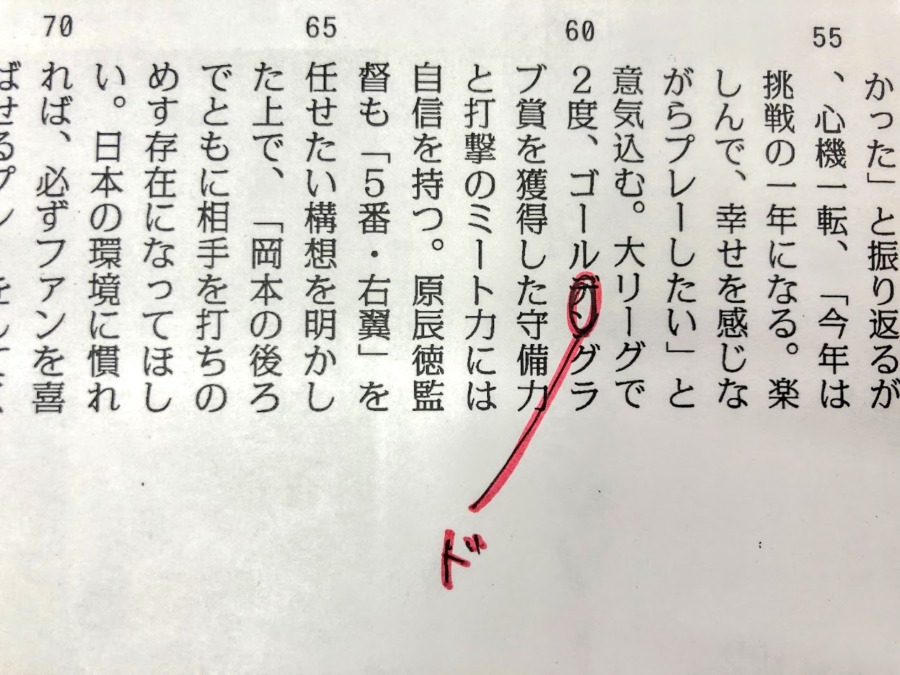 55
60
65
70
かった」と振り返るが
、心機一転、「今年は
挑戦の一年になる。楽
しんで、幸せを感じな
がらプレーしたい」と
意気込む。大リーグで
２度、ゴールデングラ
ブ賞を獲得した守備力
と打撃のミート力には
自信を持つ。原辰徳監
督も「５番・右翼」を
任せたい構想を明かし
た上で、「岡本の後ろ
でともに相手を打ちの
めす存在になってほし
い。日本の環境に慣れ
れば、必ずファンを喜
ばせるプレーをして
ド